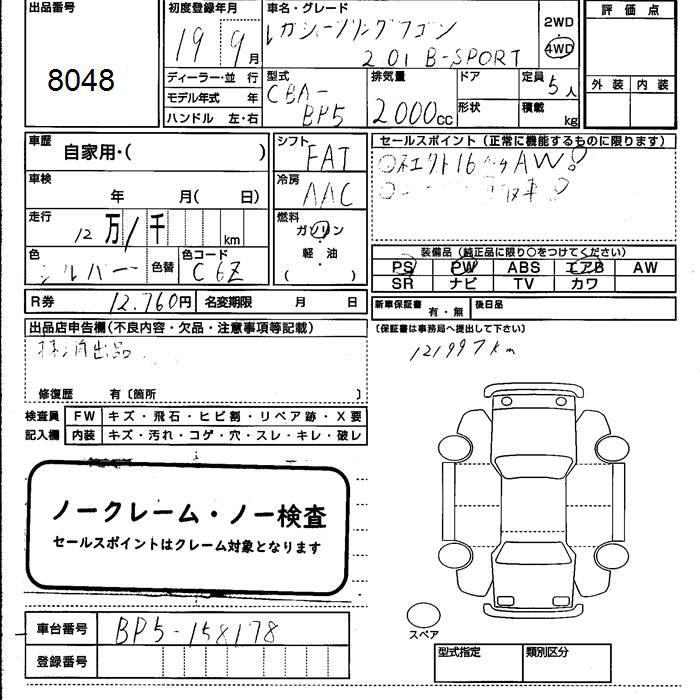 出品番号
8048
初度登録年月
19 9月
車名・グレード
レガシーツーリングワゴン
2.0i B-SPORT
2WD
4WD
評価点
外装 内装
ディーラー・並 行
モデル年式 年
ハンドル 左・右
型式
CBA-
BP5
排気量
2000cc
ドア
形状
定員 5人
積載 kg
車歴
自家用・( )
車検
年 月( 日)
走行
12万1千 km
色
シルバー
色替
色コード
C6Z
シフト
FAT
冷房
AAC
燃料
ガソリン
・
軽・油
( )
セールスポイント(正常に機能するものに限ります)
16 AW
装備品(純正品に限り○をつけてください)
PS PW ABS エアB AW
SR ナビ TV カワ
R券 12.760円 名変期限 月 日
新車保証書 有・無 後日品
(保証書は事務局へ提出して下さい)
121997km
出品店申告欄(不良内容・欠品・注意事項等記載)
出品
修復歴 有〔箇所 〕
検査員
記入欄
FW キズ・飛石・ヒビ割・リペア跡・X要
内装 キズ・汚れ・コゲ・穴・スレ・キレ・破レ
ノークレーム・ノー検査
セールスポイントはクレーム対象となります
車台番号 BP5-158178
登録番号
スペア
型式指定 類別区分